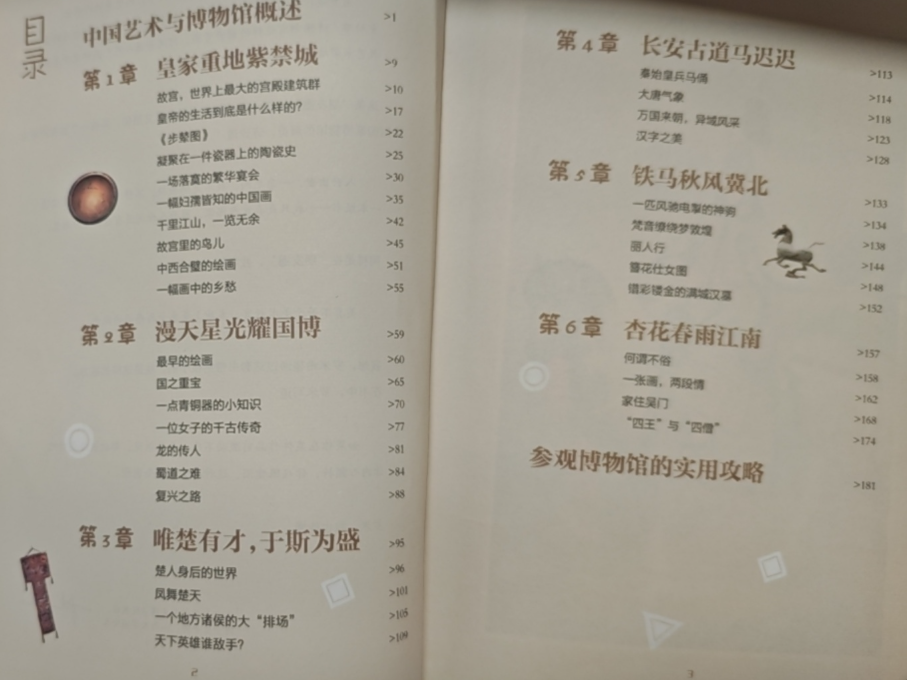 目录
中国艺术与博物馆概述 >1
第1章 皇家重地紫禁城 >9
故宫，世界上最大的宫殿建筑群 >10
皇帝的生活到底是什么样的？ >17
《步辇图》 >22
凝聚在一件瓷器上的陶瓷史 >25
一场落寞的繁华宴会 >30
一幅妇孺皆知的中国画 >35
千里江山，一览无余 >42
故宫里的鸟儿 >45
中西合璧的绘画 >51
一幅画中的乡愁 >55
第2章 漫天星光耀国博 >59
最早的绘画 >60
国之重宝 >65
一点青铜器的小知识 >70
一位女子的千古传奇 >77
龙的传人 >81
蜀道之难 >84
复兴之路 >88
第3章 唯楚有才，于斯为盛 >95
楚人身后的世界 >96
凤舞楚天 >101
一个地方诸侯的大“排场” >105
天下英雄谁敌手？ >109
2
第4章 长安古道马迟迟 >113
秦始皇兵马俑 >114
大唐气象 >118
万国来朝，异域风采 >123
汉字之美 >128
第5章 铁马秋风冀北 >133
一匹风驰电掣的神驹 >134
梵音缭绕梦敦煌 >138
丽人行 >144
簪花仕女图 >148
错彩镂金的满城汉墓 >152
第6章 杏花春雨江南 >157
何谓不俗 >158
一张画，两段情 >162
家住吴门 >168
“四王”与“四僧” >174
参观博物馆的实用攻略 >181
3